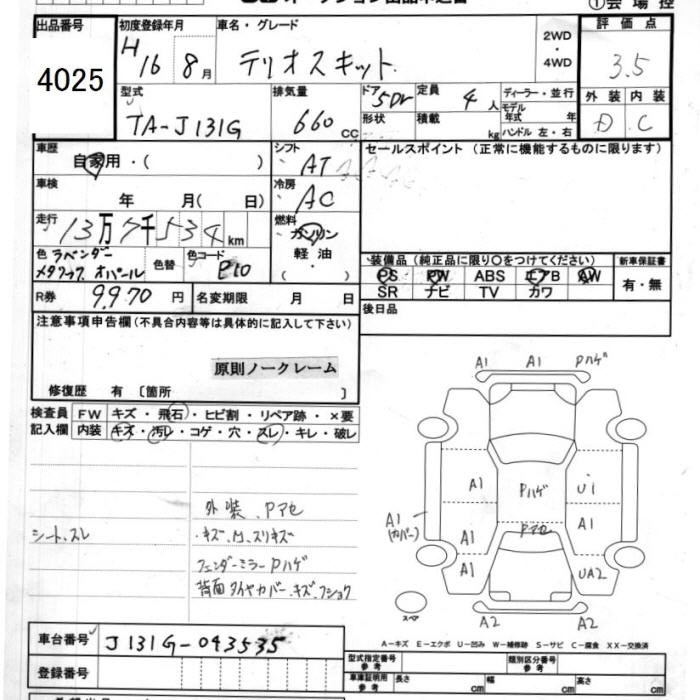 ①会場控
出品番号
4025
初度登録年月
H16 8月
車名・グレード
テリオスキット
2WD
・
4WD
評価点
3.5
外装 内装
D C
型式
TA-J131G
排気量
660cc
ドア
5Dr
形状
定員
4人
積載
kg
ディーラー・並行
モデル
年式 年
ハンドル 左・右
車歴
自家用・( )
シフト
AT
セールスポイント (正常に機能するものに限ります)
車検
年 月( 日)
冷房
AC
走行
13万7千534km
燃料
ガソリン
軽油
・( )
色 ラベンダー
メタリック オパール
色替
色コード
P10
装備品 (純正品に限り○をつけてください)
PS PW ABS エアB AW
SR ナビ TV カワ
新車保証書
有・無
R券
9,970円
名変期限 月 日
後日品
注意事項申告欄(不具合内容等は具体的に記入して下さい)
原則ノークレーム
修復歴 有 〔箇所 〕
検査員
記入欄
FW キズ・飛石・ヒビ割・リペア跡・×要
内装 キズ・汚レ・コゲ・穴・スレ・キレ・破レ
シート、スレ
外装、Pアセ
・キズ、凹、スリキズ
フェンダーミラーPハゲ
背面タイヤカバー、キズ、フショク
A1 A1 Pハゲ
A1 Pハゲ U1
A1
(カバー)
A1 Pアセ A1
A1 UA2
スペア
A2 A2
A-キズ E-エクボ U-凹み W-補修跡 S-サビ C-腐食 XX-交換済
車台番号
J131G-043535
登録番号
型式指定番号
参考
類別区分番号
参考
車庫証明用
参考
長さ cm 幅 cm 高さ cm